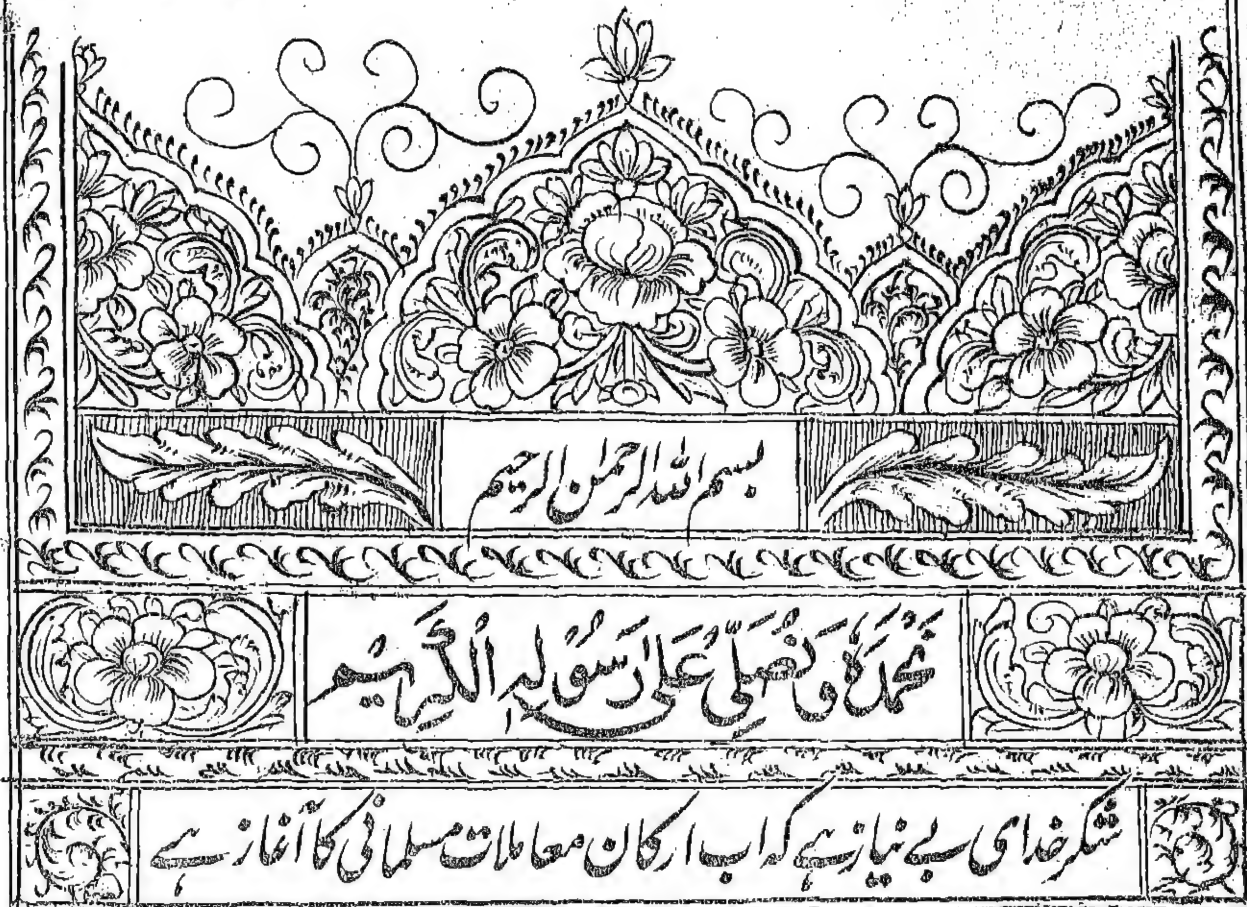 بسم اللہ الرحمٰن الرحیم
نَحْمَدُہٗ وَ نُصَلِّیْ عَلٰی رَسُوْلِہِ الْکَرِیْم
شکر خدای بے نیاز ہے کہ اب ارکان معاملات مسلمانی کا آغاز ہے